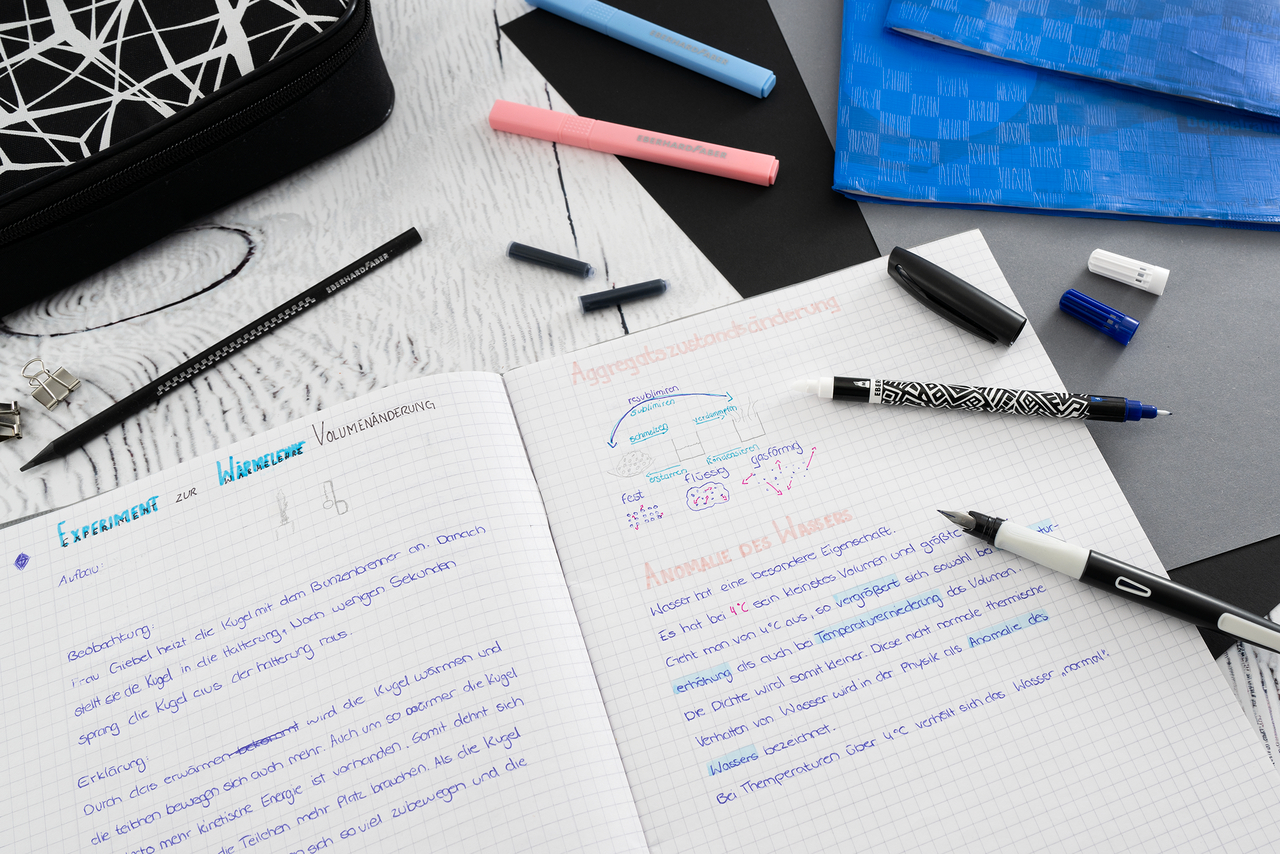 EBERHARD FABER
EBERHARD FABER
EXPERIMENT ZUR WÄRMELEHRE VOLUMENÄNDERUNG
Aufbau:
Beobachtung:
Frau Giebel heizt die Kugel mit dem Bunzenbrenner an. Danach
stellt sie die Kugel in die Halterung, Nach wenigen Sekunden
sprang die Kugel aus der halterung raus.
Erklärung:
Durch das erwärmen bekommt wird die Kugel wärmen und
die teilchen bewegen sich auch mehr. Auch um so wärmer die Kugel
mehr kinetische Energie ist vorhanden. Somit dehnt sich
die Teilchen mehr Platz brauchen. Als die Kugel
sich so viel zubewegen und die
Aggregatszustandsänderung
resublimiren
sublimiren
schmelzen
verdammpfen
erstarren
kondensieren
fest
flüssig
gasförmig
ANOMALIE DES WASSERS
Wasser hat eine besondere Eigenschaft.
Es hat bei 4°C sein kleinstes Volumen und größte
Geht man von 4°C aus, so vergrößert sich sowohl bei
tur-
erhöhung als auch bei Temperaturerniederung das Volumen.
Die Dichte wird somit kleiner. Diese nicht normale thermische
Verhalten von Wasser wird in der Physik als Anomalie des
Wassers bezeichnet.
Bei Themperaturen über 4°C verhält sich das Wasser „normal".